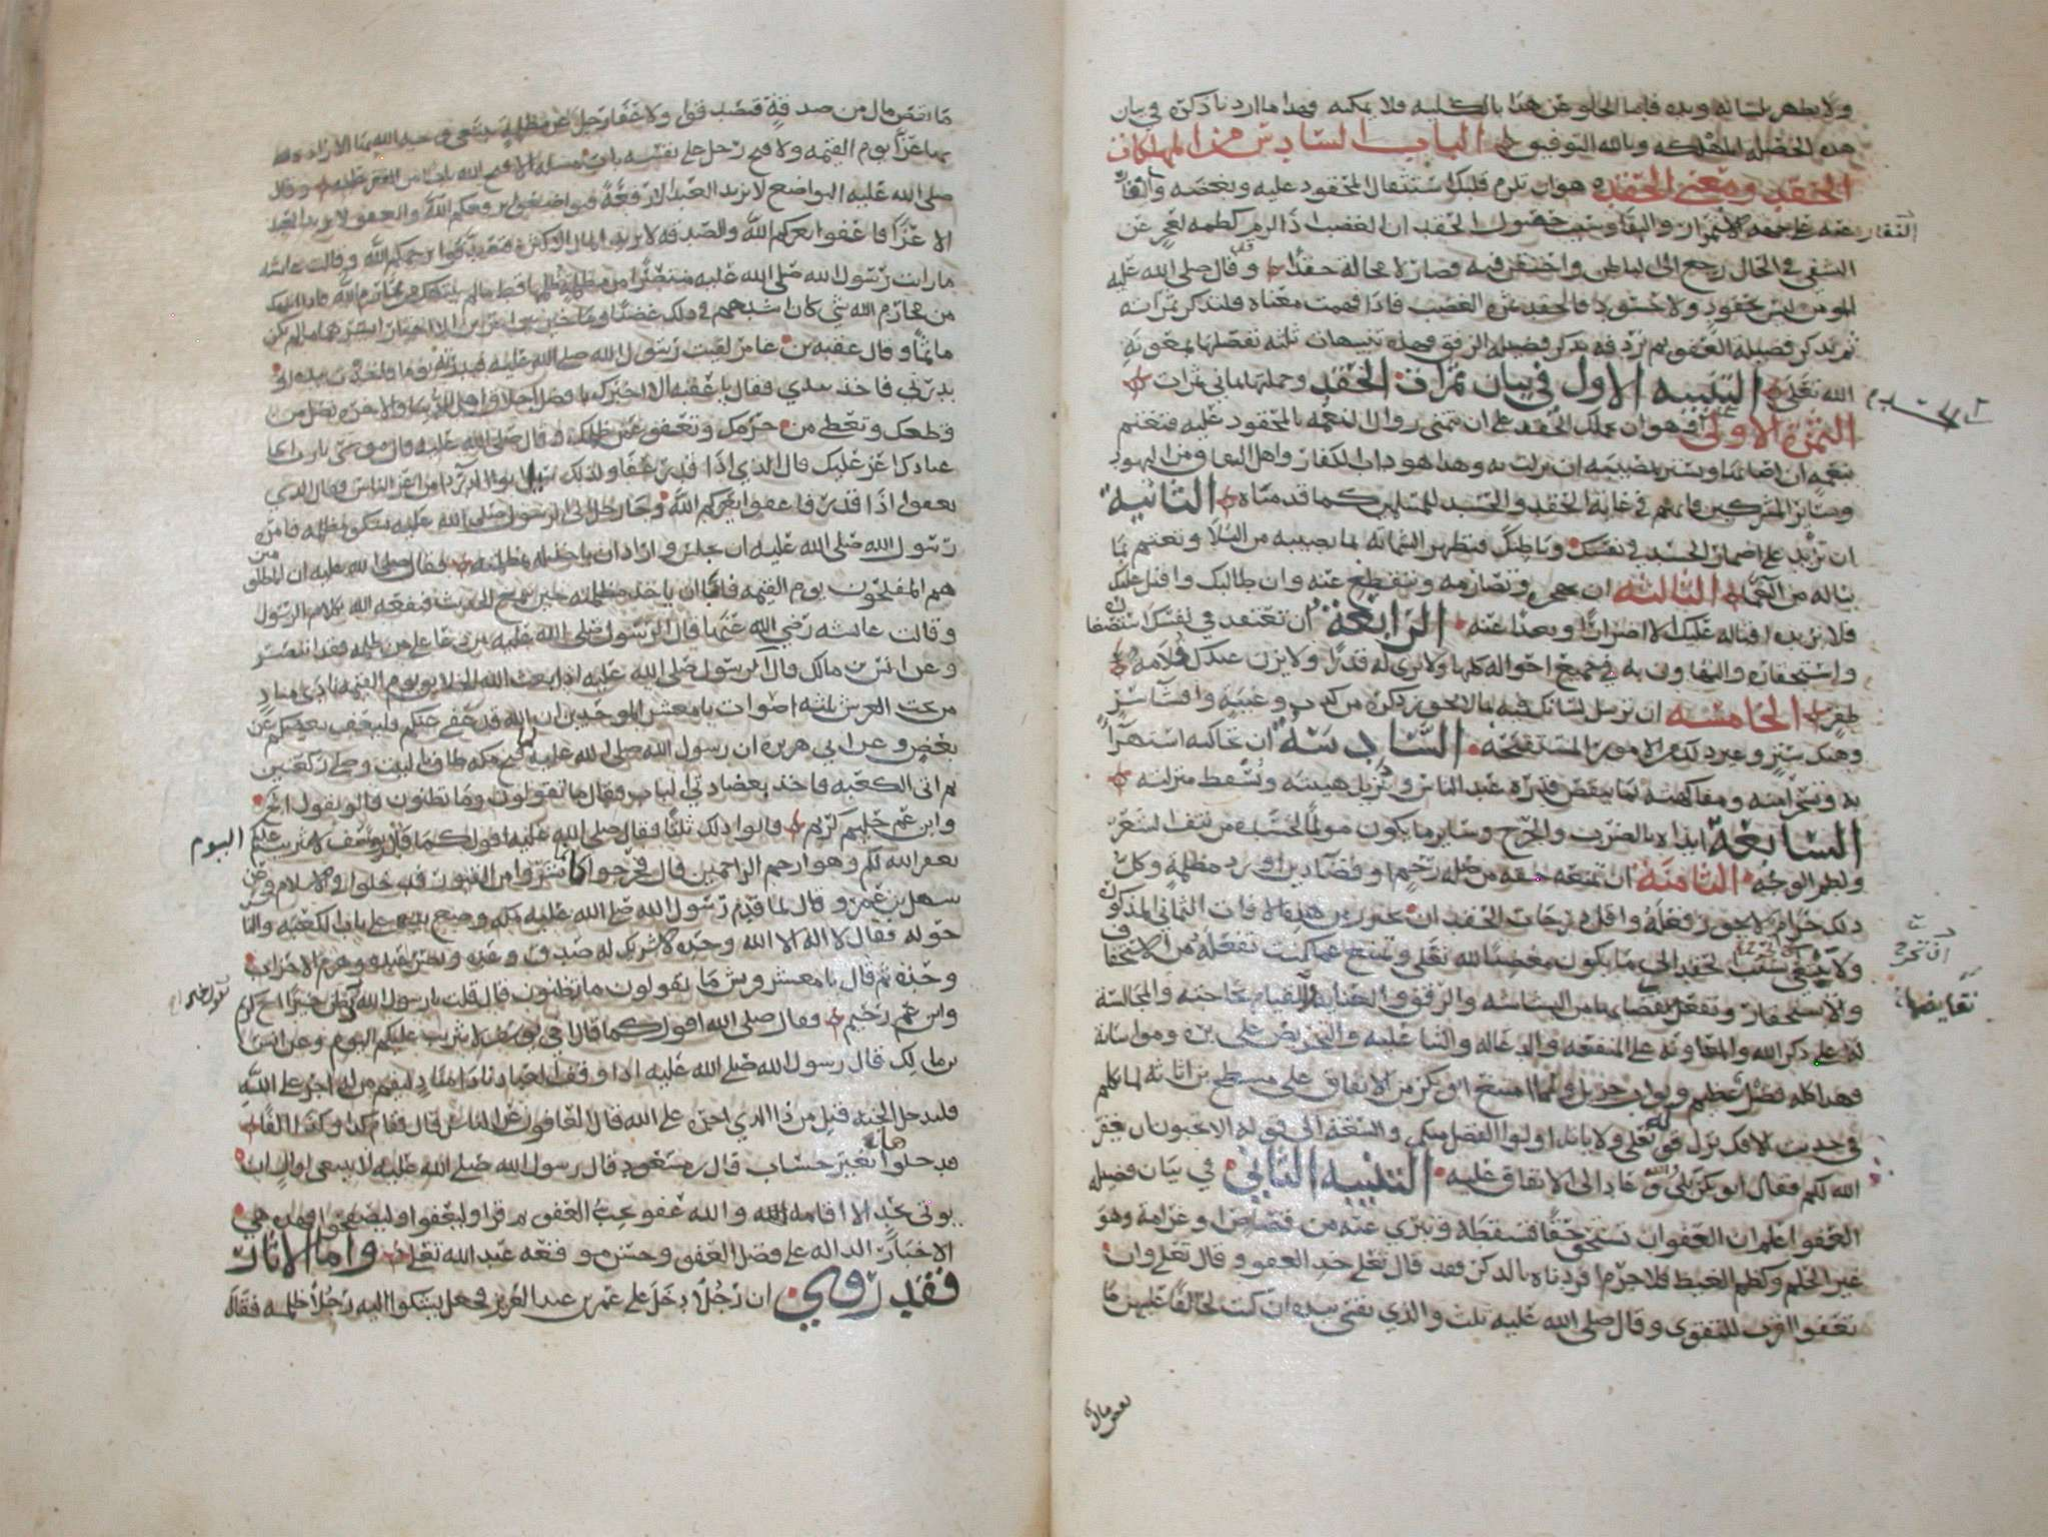 ولا يظهر بلسانه ويده فاما الخلو عن هذا بالكلية فلا يمكنه فهذا ما اردنا ذكره في بيان
هذه الخصلة المهلكه وبالله التوفيق الباب السادس من المهلكات
الحقد ومعنى الحقد هو ان تلزم قلبك استثقال المحقود عليه وبغضه والنفار
عنه على جهة الاستمرار والبقا وسبب حصول الحقد ان الغضب اذا لزم كظمه لعجز عن
النفار
التشفي في الحال رجع الى الباطن واحتقن فيه وصار لا محالة حقدا وقد قال صلى الله عليه
المومن ليس بحقود ولا حسود فالحقد ثمرة الغضب فاذا فهمت معناه فلنذكر ثمراته
ثم نذكر فضيلة العفو ثم نردفه بذكر فضيلة الرفق فهذه تنبيهات ثلثه نفصلها بمعونة
الله تعلى التنبيه الاول في بيان ثمرات الحقد وجملتها ثماني ثمرات
الثمرة الاولى وهو ان يحملك الحقد على ان تتمنى زوال النعمه بالمحقود عليه فتغتم
بنعمه ان اصابها وتسر بمصيبه ان نزلت به وهذا هو داب الكفار واهل النفاق ومن اليهود
وسائر المشركين فانهم في غاية الحقد والحسد للمسلمين كما قدمناه الثانية
ان تزيد على اضمار الحسد في نفسك وباطنك فتظهر الشماته لما يصيبه من البلا وتغتم بما
يناله من النعما الثالثه ان تهجره وتصارمه وتنقطع عنه وان طالبك واقبل عليك
فلا يزيده اقباله عليك الا اضرابا وبعدا عنه الرابعة ان تعتقد في نفسك استصغاره
واستحقاره والتهاون به في جميع احواله كلها ولا ترى له قدرا ولا يزن عندك قلامة
ظفر الخامسه ان ترسل لسانك فيه بما لا يجوز ذكره من كذب وغيبة وافشآ سر
وهتك ستر وغير ذلك من الامور المستقبحه السادسة ان تحاكيه استهزآ
به وسخرية ومفاكهة بما ينقص قدره عند الناس وتزيل هيبته وتسقط منزلته
السابعة ايذاه بالضرب والجرح وساير ما يكون مولما لجسده من نتف الشعر
ولطم الوجه الثامنة ان تمنعه حقه من صلة رحم او قضآ دين او رد مظلمة وكل
ذلك حرام لا يجوز فعله واقل درجات الحقد ان تحترز من هذه الافات الثماني المذكورة
ان تحترز
ولا ينتهي بسبب الحقد الى ما يكون معصية لله تعلى وتمتنع عما كنت تفعله من الاستخفاف
والاستحقار وتفعل نقضايها من البشاشه والرفق والعناية والقيام بحاجته والمجالسة
نقايضها
له على ذكر الله والمعاونه على المنفعه والدعا له والثنا عليه والتحريض على بره ومواساته
فهذا كله فضل عظيم وثواب جزيل ولما امتنع ابو بكر من الانفاق على مسطح بن اثاثه لما تكلم
في حديث الافك نزل قوله تعلى ولا ياتل اولوا الفضل منكم والسعة الى قوله الا تحبون ان يغفر
الله لكم فقال ابو بكر بلى والله وعاد الى الانفاق عليه التنبيه الثاني في بيان فضيلة
العفو اعلم ان العفو ان تستحق حقا فتسقطه وتبرئ عنه من قصاص او غرامه وهو
غير الحلم وكظم الغيظ فلا جرم افردناه بالذكر فقد قال تعلى خذ العفو وقال تعلى وان
تعفوا اقرب للتقوى وقال صلى الله عليه ثلث والذي نفسي بيده ان كنت لحالفا عليهن ما
نقص مال
ما نقص مال من صدقة فتصدقوا ولا عفا رجل عن مظلمة يبتغي بها وجه الله الا زاده الله
بها عزا يوم القيمه ولا فتح رجل على نفسه باب مسله الا فتح الله عليه باب فقر وقال
صلى الله عليه التواضع لا يزيد العبد الا رفعة فتواضعوا يرفعكم الله والعفو لا يزيد العبد
الا عزا فاعفوا يعزكم الله والصدقه لا تزيد المال الا كثرة فتصدقوا يرحمكم الله وقالت عائشه
ما رايت رسول الله صلى الله عليه منتصرا من مظلمة ظلمها قط ما لم ينتهك من محارم الله فاذا انتهك
من محارم الله شي كان اشدهم في ذلك غضبا وما خير بين امرين الا اختار ايسرهما ما لم يكن
ماثما وقال عقبه بن عامر لقيت رسول الله صلى الله عليه فبدرته فاخذت بيده او
بدرني فاخذ بيدي فقال يا عقبه الا اخبرك بافضل اخلاق اهل الدنيا والاخره تصل من
قطعك وتعطي من حرمك وتعفو عمن ظلمك وقال صلى الله عليه قال موسى يا رب اي
عبادك اعز عليك قال الذي اذا قدر عفا ولذلك سئل ابو الدردا من اعز الناس فقال الذي
يعفوا اذا قدر فاعفوا يعزكم الله وجا رجل الى الرسول صلى الله عليه يشكو مظلمه فامره
رسول الله صلى الله عليه ان يجلس واراد ان ياخذ له مظلمته فقال صلى الله عليه ان المظلومين
هم المفلحون يوم القيمه فابى ان ياخذ مظلمته حين سمع الحديث فنفعه الله بكلام الرسول
وقالت عائشه رضي الله عنها قال الرسول صلى الله عليه من دعا على من ظلمه فقد انتصر
وعن انس بن مالك قال الرسول صلى الله عليه اذا بعث الله الخلايق يوم القيمه نادى مناد
من تحت العرش ثلثة اصوات يا معشر الموحدين ان الله قد عفى عنكم فليعف بعضكم عن
بعض وعن ابي هريره ان رسول الله صلى الله عليه لما فتح مكه طاف بالبيت وصلى ركعتين
ثم اتى الكعبه فاخذ بعضادتي الباب فقال ما تقولون وما تظنون قالوا نقول اخ
وابن عم حليم كريم قالوا ذلك ثلثا فقال صلى الله عليه اقول كما قال يوسف لا تثريب عليكم اليوم
يغفر الله لكم وهو ارحم الراحمين قال فخرجوا كانما نشروا من القبور فدخلوا في الاسلام وعن
سهيل بن عمرو قال لما قدم رسول الله صلى الله عليه مكه وضع يديه على باب الكعبه والناس
حوله فقال لا اله الا الله وحده لا شريك له صدق وعده ونصر عبده وهزم الاحزاب
وحده ثم قال يا معشر قريش ما تقولون ما تظنون قال قلت يا رسول الله نظن خيرا اخ كريم
نقول خيرا
وابن عم رحيم فقال صلى الله اقول كما قال اخي يوسف لا تثريب عليكم اليوم وعن انس
بن مالك قال رسول الله صلى الله عليه اذا وقف العباد نادا مناد ليقم من له اجر على الله
فليدخل الجنه قيل من ذا الذي اجره على الله قال العافون عن الناس قال فقام كذا وكذا الفا
فدخلوها بغير حساب قال بن مسعود قال رسول الله صلى الله عليه لا ينبغي لوال ان
يوتى بحد الا اقامه والله عفو يحب العفو ثم قرا وليعفوا وليصفحوا فهذه هي
الاخبار الداله على فضل العفو وحسن موقعه عند الله تعلى واما الاثار
فقد روي ان رجلا دخل على عمر بن عبد العزيز فجعل يشكوا اليه رجلا ظلمه فقال